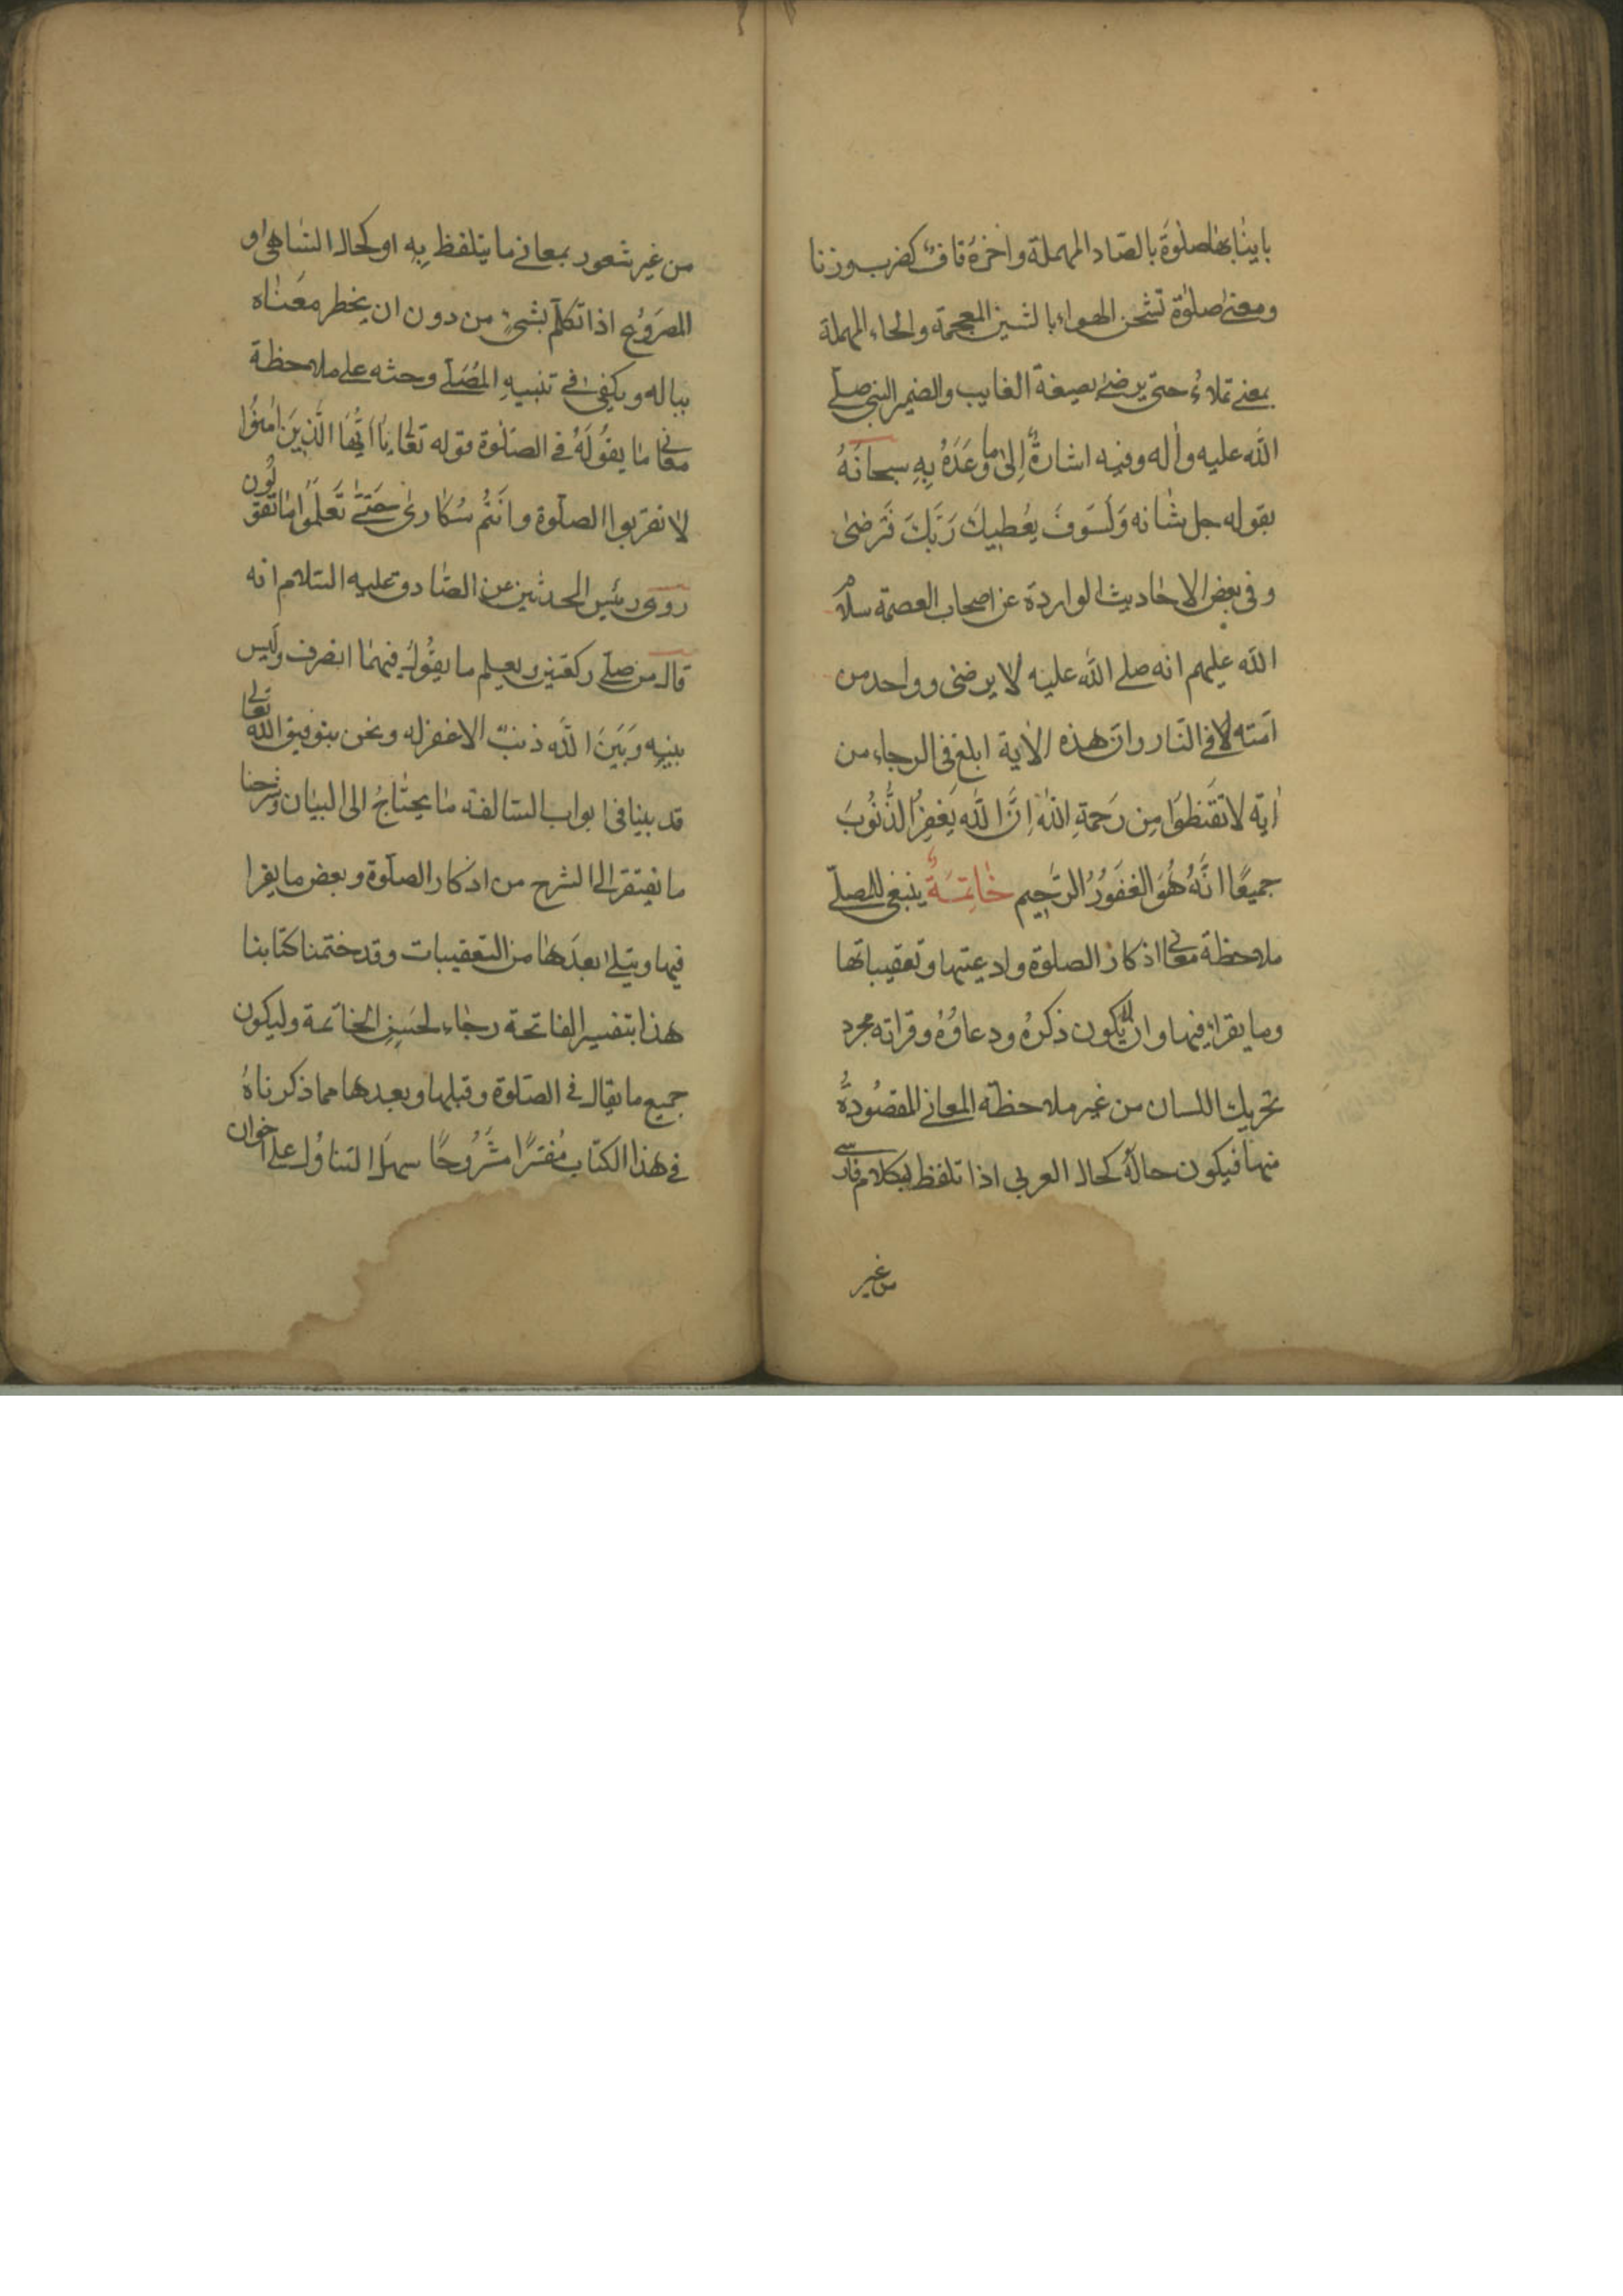 بابنا بها صلوة بالصاد المهملة واخره قاف كضرب وزنا
ومعنى صلوة تشحن الهواء بالشين المعجمة والحاء المهملة
بمعنى تملاء حتى يرضى بصيغة الغايب والضمير النبى صلى
الله عليه واله وفيه اشارة إلى ما وعده به سبحانه
بقوله جل شانه ولسوف يعطيك ربك فترضى
وفى بعض الاحاديث الواردة عن اصحاب العصمة سلام
الله عليهم انه صلى الله عليه لا يرضى وواحد من
امته لا فى النار وان هذه الاية ابلغ فى الرجاء من
اية لا تقنطوا من رحمة الله إن الله يغفر الذنوب
جميعا انه هو الغفور الرحيم خاتمة ينبغى للمصلى
ملاحظة معانى اذكار الصلوة وادعيتها وتعقيباتها
وما يقراء فيها وان لا يكون ذكره ودعاؤه وقراته مجرد
تحريك اللسان من غير ملاحظة المعانى المقصودة
منها فيكون حاله كحال العربى اذا تلفظ بكلام فارسى
من غير
من غير شعور بمعانى ما يتلفظ به او كحال الساهى او
المصروع اذا تكلم بشىء من دون ان يخطر معناه
بباله ويكفى فى تنبيه المصلى وحثه على ملاحظة
معانى ما يقوله فى الصلوة قوله تعالى يا ايها الذين امنوا
لا تقربوا الصلوة وانتم سكارى حتى تعلموا ما تقولون
روى رئيس المحدثين عن الصادق عليه السلام انه
قال من صلى ركعتين يعلم ما يقول فيهما انصرف وليس
بينه وبين الله ذنب الا غفر له ونحن بتوفيق الله تعالى
قد بينا فى ابواب السالفة ما يحتاج الى البيان وشرحنا
ما يفتقر الى الشرح من اذكار الصلوة وبعض ما يقرا
فيها ويتلى بعدها من التعقيبات وقد ختمنا كتابنا
هذا بتفسير الفاتحة رجاء لحسن الخاتمة وليكون
جميع ما يقال فى الصلوة وقبلها وبعدها مما ذكرناه
فى هذا الكتاب مفسرا مشروحا سهل التناول على اخوان